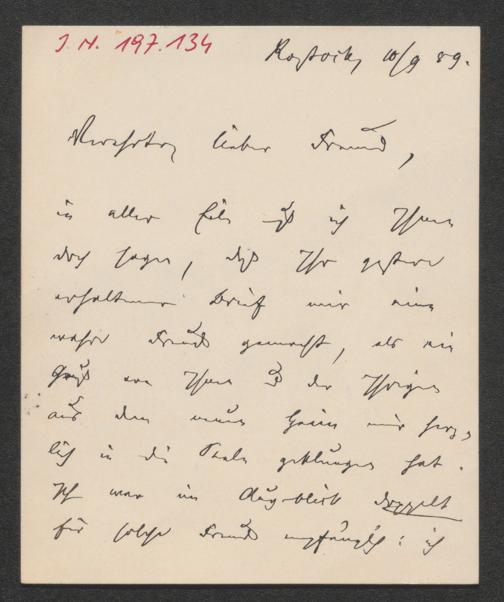 J. N. 197.134
Rostock, 10/9 89.
Verehrter, lieber Freund,
in aller Eile muß ich Ihnen
doch sagen, daß Ihr gestern
erhaltener Brief mir eine
wahre Freude gemacht, als ein
Gruß von Ihnen u. der Ihrigen
aus dem neuen Heim mir herz-
lich in die Seele geklungen hat.
Ich war im Augenblick doppelt
für solche Freude empfänglich: ich